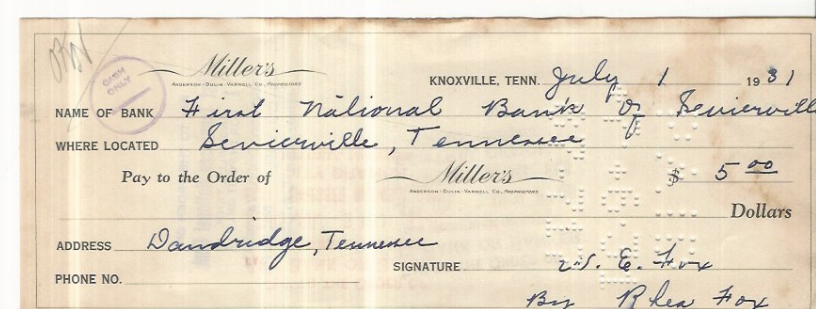 CASH ONLY
Miller's
ANDERSON-DULIN-VARNELL CO., PROPRIETORS
KNOXVILLE, TENN. July 1 1931
NAME OF BANK First National Bank of Sevierville
WHERE LOCATED Sevierville, Tennessee
Pay to the Order of Miller's $ 5 00
ANDERSON-DULIN-VARNELL CO., PROPRIETORS
Dollars
ADDRESS Dandridge, Tennessee
SIGNATURE E. Fox
PHONE NO.
By Rhea Fox